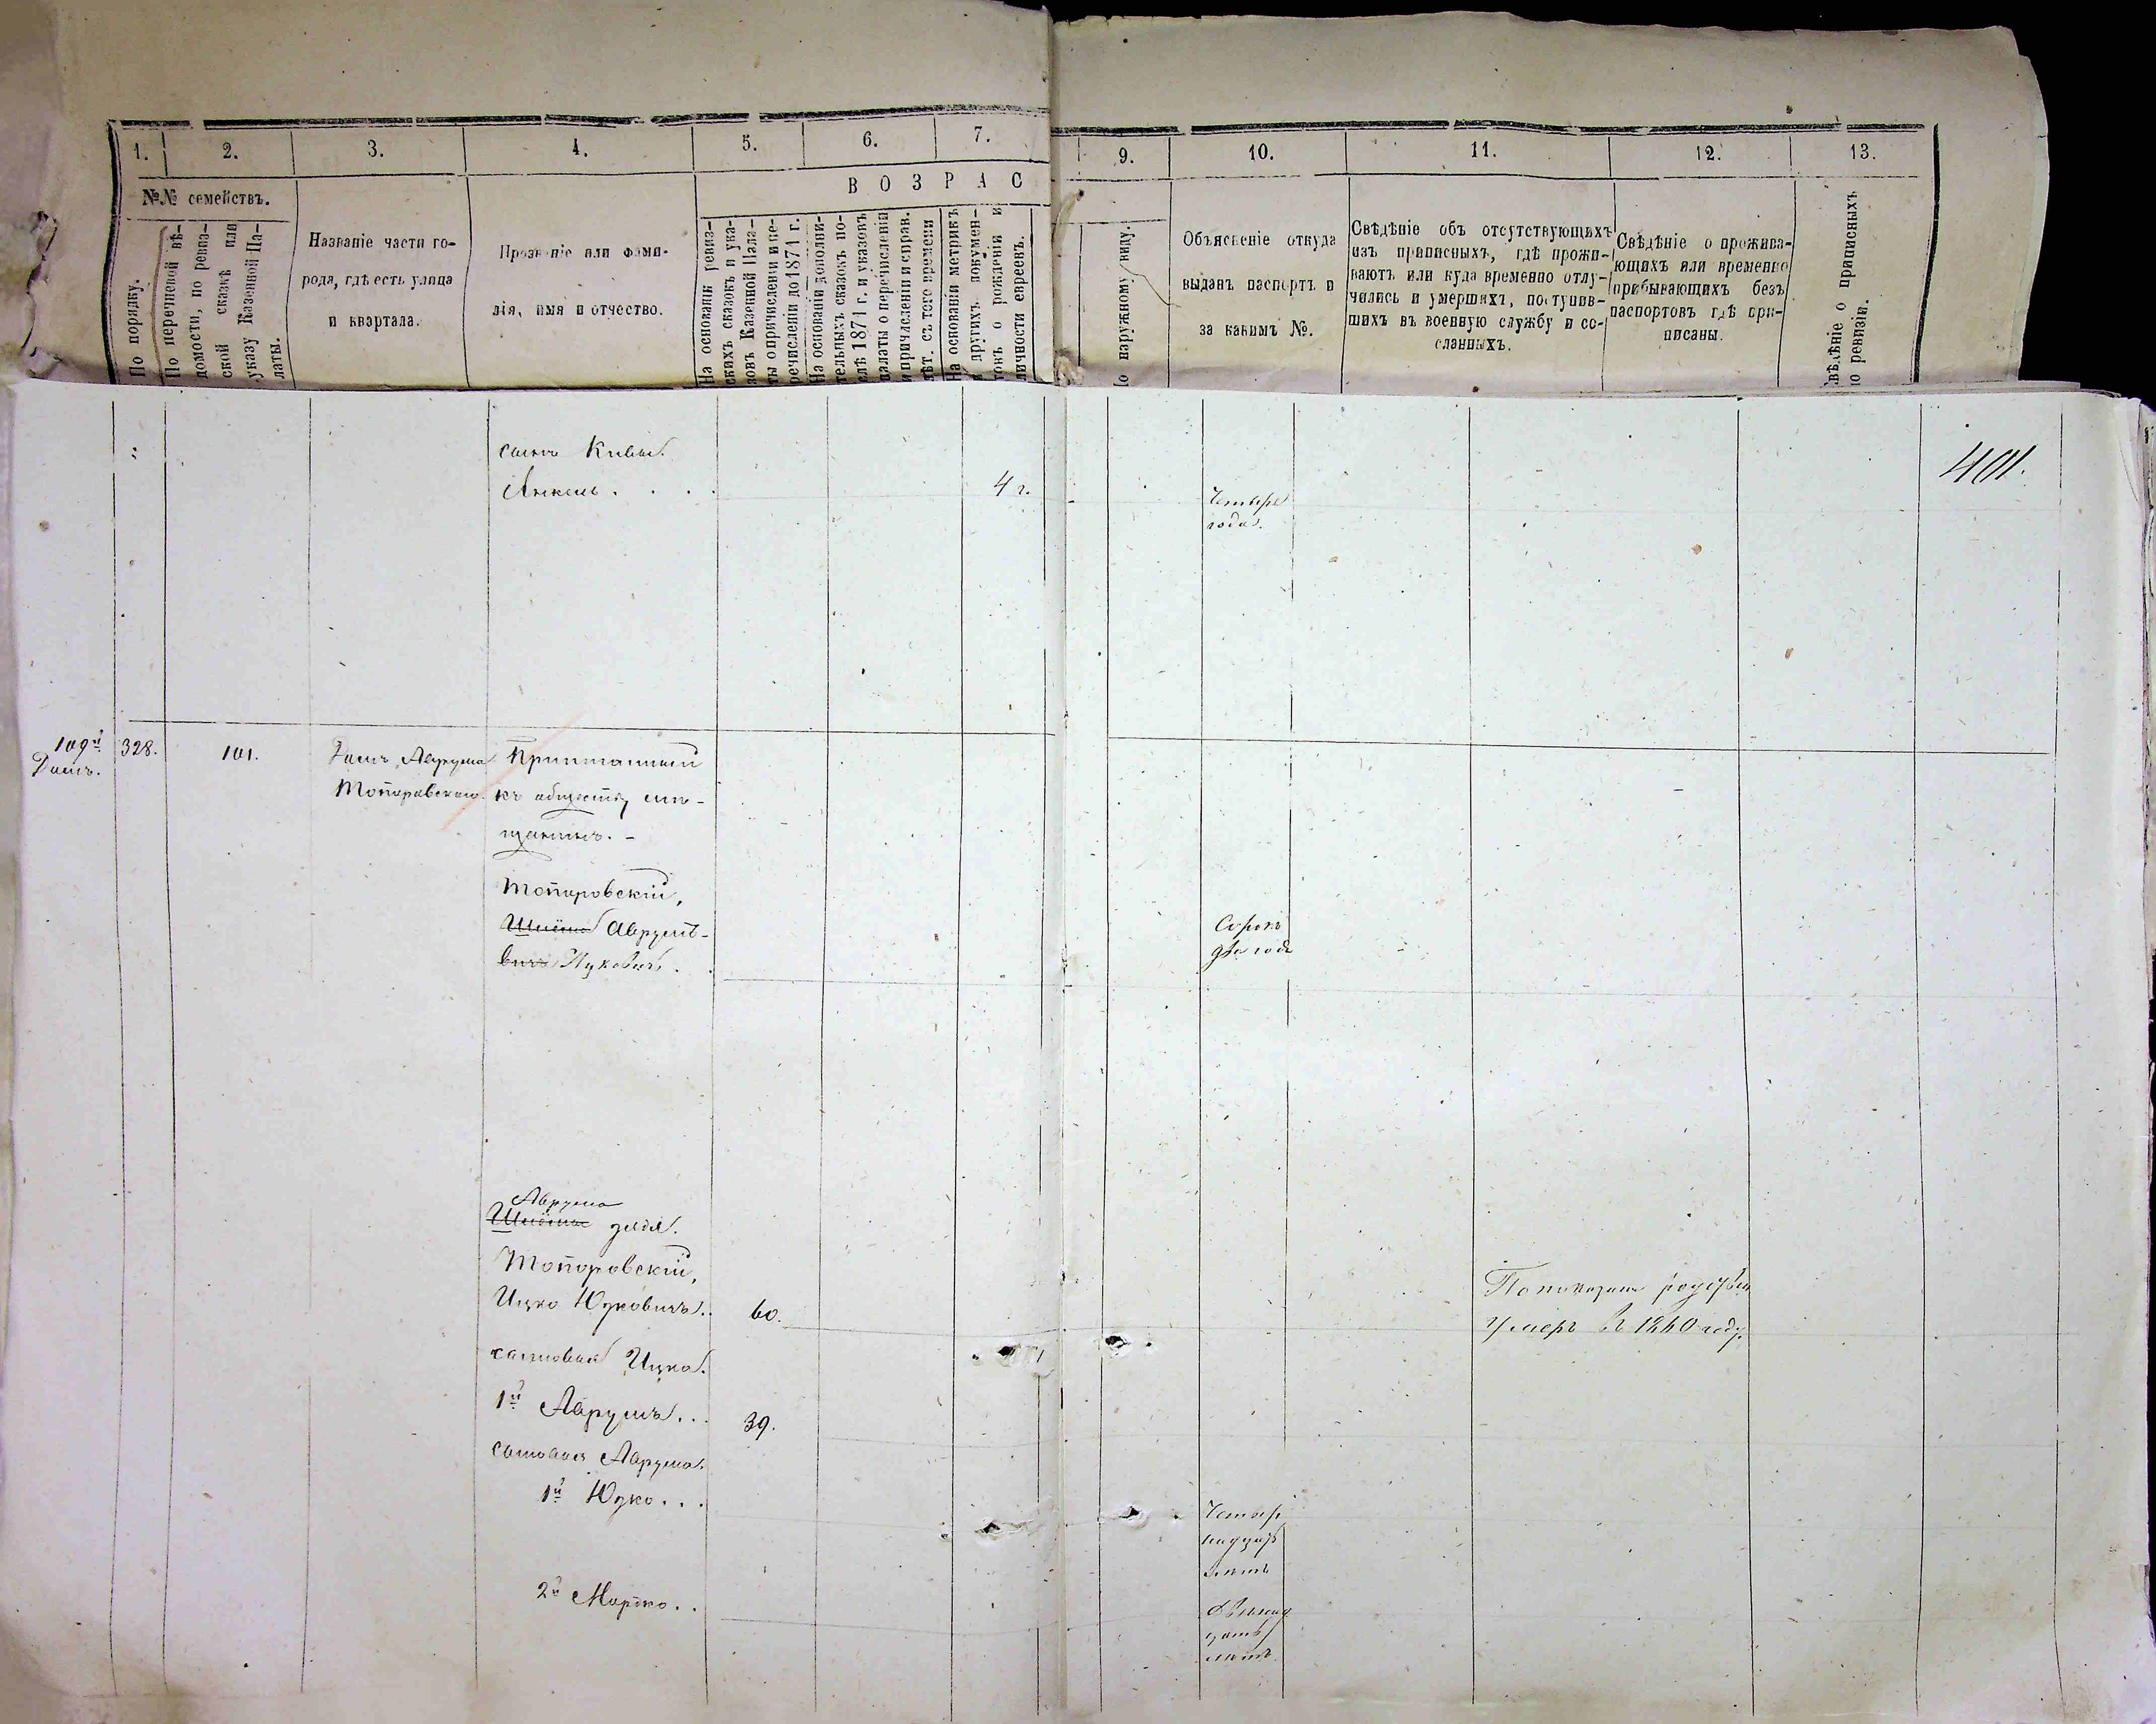 1. 2. 3. 4. 5. 6. 7. 9. 10. 11. 12. 13.
№№ семействъ.
ВОЗРАС
По порядку.
По переписной вѣ-
домости, по ревиз-
ской сказкѣ или
указу Казенной Па-
латы.
Названіе части го-
рода, гдѣ есть улица
и квартала.
Прозваніе или фами-
лія, имя и отчество.
На основаніи ревиз-
скихъ сказокъ и ука-
зовъ Казенной Пала-
ты о причисленіи и пе-
речисленіи до 1871 г.
На основаніи дополни-
тельныхъ сказокъ по-
слѣ 1871 г. и указовъ
палаты о перечисленіи
и причисленіи и справ.
лѣт. съ того времени
На основаніи метрикъ
и другихъ докумен-
товъ о рожденіи и
личности евреевъ.
По наружному виду.
Объясненіе откуда
выданъ паспортъ и
за какимъ №.
Свѣдѣніе объ отсутствующихъ
изъ приписныхъ, гдѣ прожи-
ваютъ или куда временно отлу-
чились и умершихъ, поступив-
шихъ въ военную службу и со-
сланныхъ.
Свѣдѣніе о прожива-
ющихъ или временно
прибывающихъ безъ
паспортовъ гдѣ при-
писаны.
Свѣдѣніе о приписныхъ
по ревизіи.
401.
сынъ Кивы.
Янкель . . . . 4 г.
Четыре
года.
109й
Домъ.
328.
101.
Домъ Аврума
Топоровскаго.
къ обществу мѣ-
щанинъ. -
Топоровскій,
Аврумъ-
вичъ Ицковичъ.
Сорокъ
два года
Аврума
дядя.
Топоровскій,
Ицко Юзковичъ. 60.
умеръ въ 1860 году.
сыновья Ицка.
1й Аврумъ . . . 39.
Сыновья Аврума.
1й Юзко . . .
Четыр
надцать
лѣтъ
2й Марко . .
Двѣнад
цать
лѣтъ.